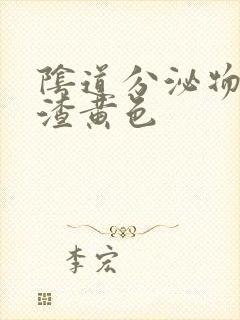 陰道分泌物
渣黄色
李宏